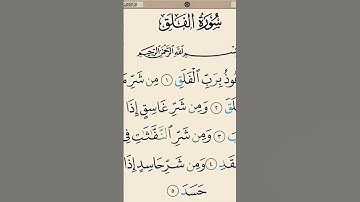 سُورَةُ الفَلَقِ
ـسْمِ ٱللَّهِ ٱلرَّحْمَٰنِ ٱلرَّحِيمِ
ـوذُ بِرَبِّ ٱلْفَلَقِ ١ مِن شَرِّ مَا
ـلَقَ ٢ وَمِن شَرِّ غَاسِقٍ إِذَا
ـبَ ٣ وَمِن شَرِّ ٱلنَّفَّٰثَٰتِ فِى
ـقَدِ ٤ وَمِن شَرِّ حَاسِدٍ إِذَا
حَسَدَ ٥